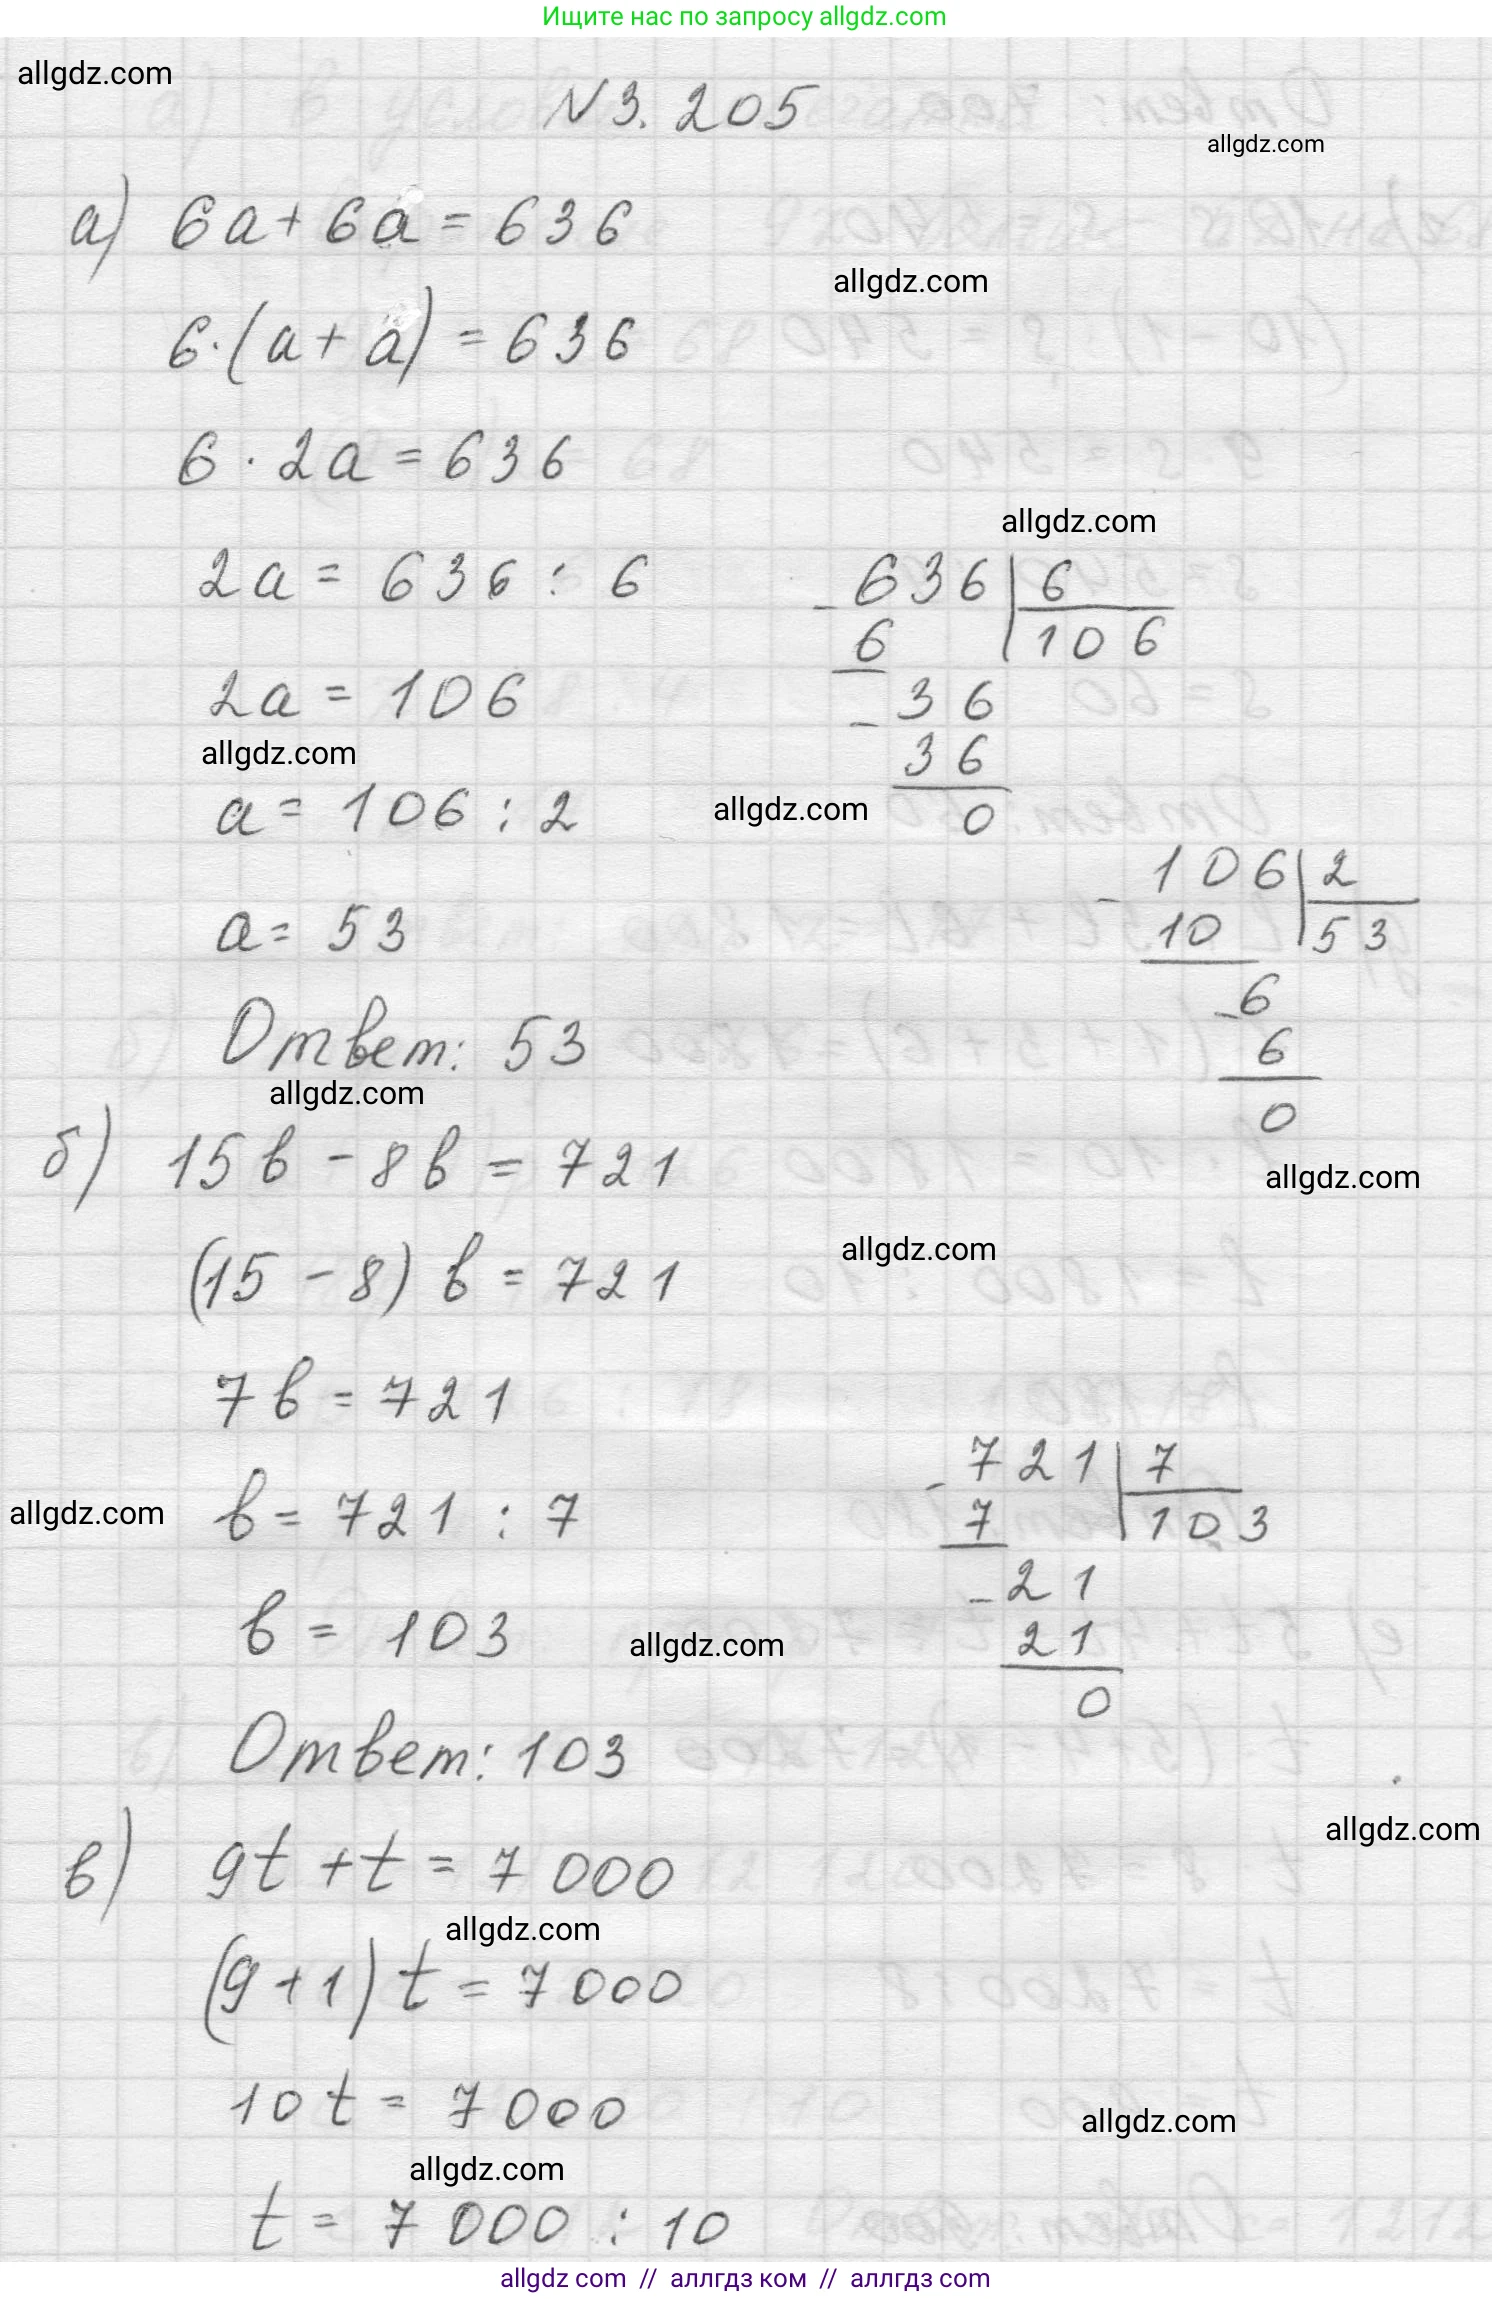 Ищите нас по запросу allgdz.com
allgdz.com
N 3. 205
allgdz.com
а) 6a + 6a = 636
allgdz.com
6·(a + a) = 636
6 · 2a = 636
allgdz.com
2a = 636 : 6
- 636 | 6
6 106
2a = 106
- 36
allgdz.com
36
a = 106 : 2
allgdz.com
0
- 106 | 2
a = 53
10 53
- 6
Ответ: 53
6
allgdz.com
0
б) 15b - 8b = 721
allgdz.com
(15 - 8) b = 721
allgdz.com
7b = 721
- 721 | 7
b = 721 : 7
allgdz.com
7 103
- 21
b = 103
allgdz.com
21
0
Ответ: 103
allgdz.com
в) 9t + t = 7 000
allgdz.com
(9 + 1) t = 7 000
10 t = 7 000
allgdz.com
allgdz.com
t = 7 000 : 10
allgdz com // аллгдз ком // аллгдз com